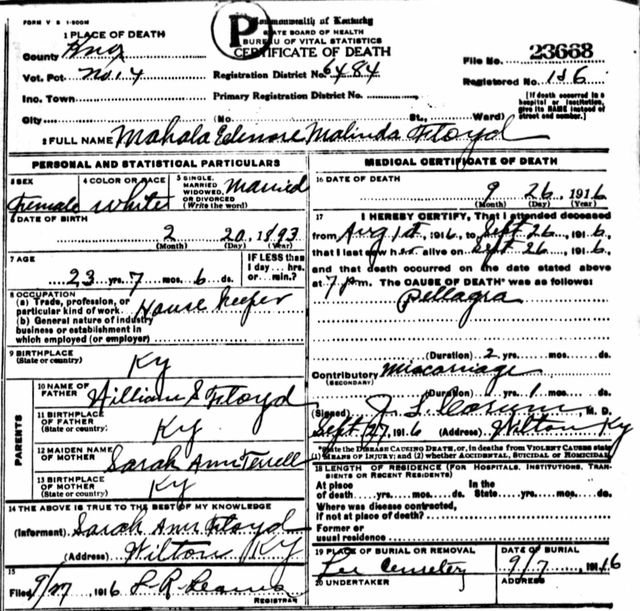 FORM V S 1-500M
Commonwealth of Kentucky
P
STATE BOARD OF HEALTH
BUREAU OF VITAL STATISTICS
CERTIFICATE OF DEATH
1 PLACE OF DEATH
County
Vot. Pct No. 14
Inc. Town
City
Registration District No. 6484
Primary Registration District No.
(No St., Ward)
File No. 23668
Registered No. 186
[If death occurred in a
hospital or institution,
give its NAME instead of
street and number.]
2 FULL NAME Mahala Malinda Floyd
PERSONAL AND STATISTICAL PARTICULARS
3 SEX
Female
4 COLOR OR RACE
White
5 SINGLE,
MARRIED
WIDOWED,
OR DIVORCED
(Write the word)
Married
6 DATE OF BIRTH
2 20, 1893
(Month) (Day) (Year)
7 AGE
23 yrs. 7 mos. 6 ds.
IF LESS than
1 day... hrs.
or... min.?
8 OCCUPATION
(a) Trade, profession, or
particular kind of work
House keeper
(b) General nature of industry
business or establishment in
which employed (or employer)
9 BIRTHPLACE
(State or country)
Ky
PARENTS
10 NAME OF
FATHER
William S Floyd
11 BIRTHPLACE
OF FATHER
(State or country)
Ky
12 MAIDEN NAME
OF MOTHER
Sarah Ann Terrell
13 BIRTHPLACE
OF MOTHER
(State or country)
Ky
14 THE ABOVE IS TRUE TO THE BEST OF MY KNOWLEDGE
(Informant) Sarah Ann Floyd
(Address) Wilton Ky
15
Filed 1916
REGISTRAR
MEDICAL CERTIFICATE OF DEATH
16 DATE OF DEATH
9 26, 1916
(Month) (Day) (Year)
17 I HEREBY CERTIFY, That I attended deceased
from Aug 1st, 1916, to Sept 26, 1916,
that I last saw her alive on Sept 26, 1916,
and that death occurred on the date stated above
at 7 pm. The CAUSE OF DEATH* was as follows:
Pellagra
(Duration) 2 yrs. mos. ds.
Contributory Miscarriage
(SECONDARY)
(Duration) yrs. 1 mos. ds.
(Signed) M. D.
Sept 27, 1916 (Address) Wilton Ky
*State the DISEASE CAUSING DEATH, or, in deaths from VIOLENT CAUSES state
(1) MEANS OF INJURY; and (2) whether ACCIDENTAL, SUICIDAL or HOMICIDAL
18 LENGTH OF RESIDENCE (FOR HOSPITALS, INSTITUTIONS, TRAN-
SIENTS OR RECENT RESIDENTS)
At place
of death yrs. mos. ds.
In the
State yrs. mos. ds.
Where was disease contracted,
if not at place of death?
Former or
usual residence
19 PLACE OF BURIAL OR REMOVAL
DATE OF BURIAL
1916
20 UNDERTAKER
ADDRESS